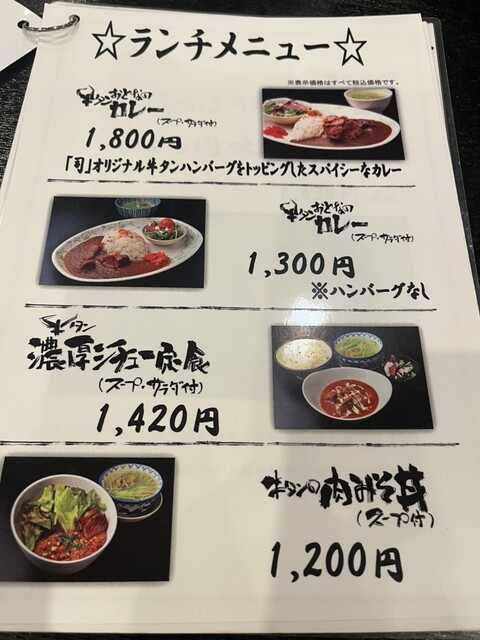 ☆ランチメニュー☆
※表示価格はすべて税込価格です。
牛タンおとなの
カレー
(スープ・サラダ付)
1,800円
「司」オリジナル牛タンハンバーグをトッピングしたスパイシーなカレー
牛タンおとなの
カレー
(スープ・サラダ付)
1,300円
※ハンバーグなし
牛タン
濃厚シチュー定食
(スープ・サラダ付)
1,420円
牛タンの肉みそ丼
(スープ付)
1,200円